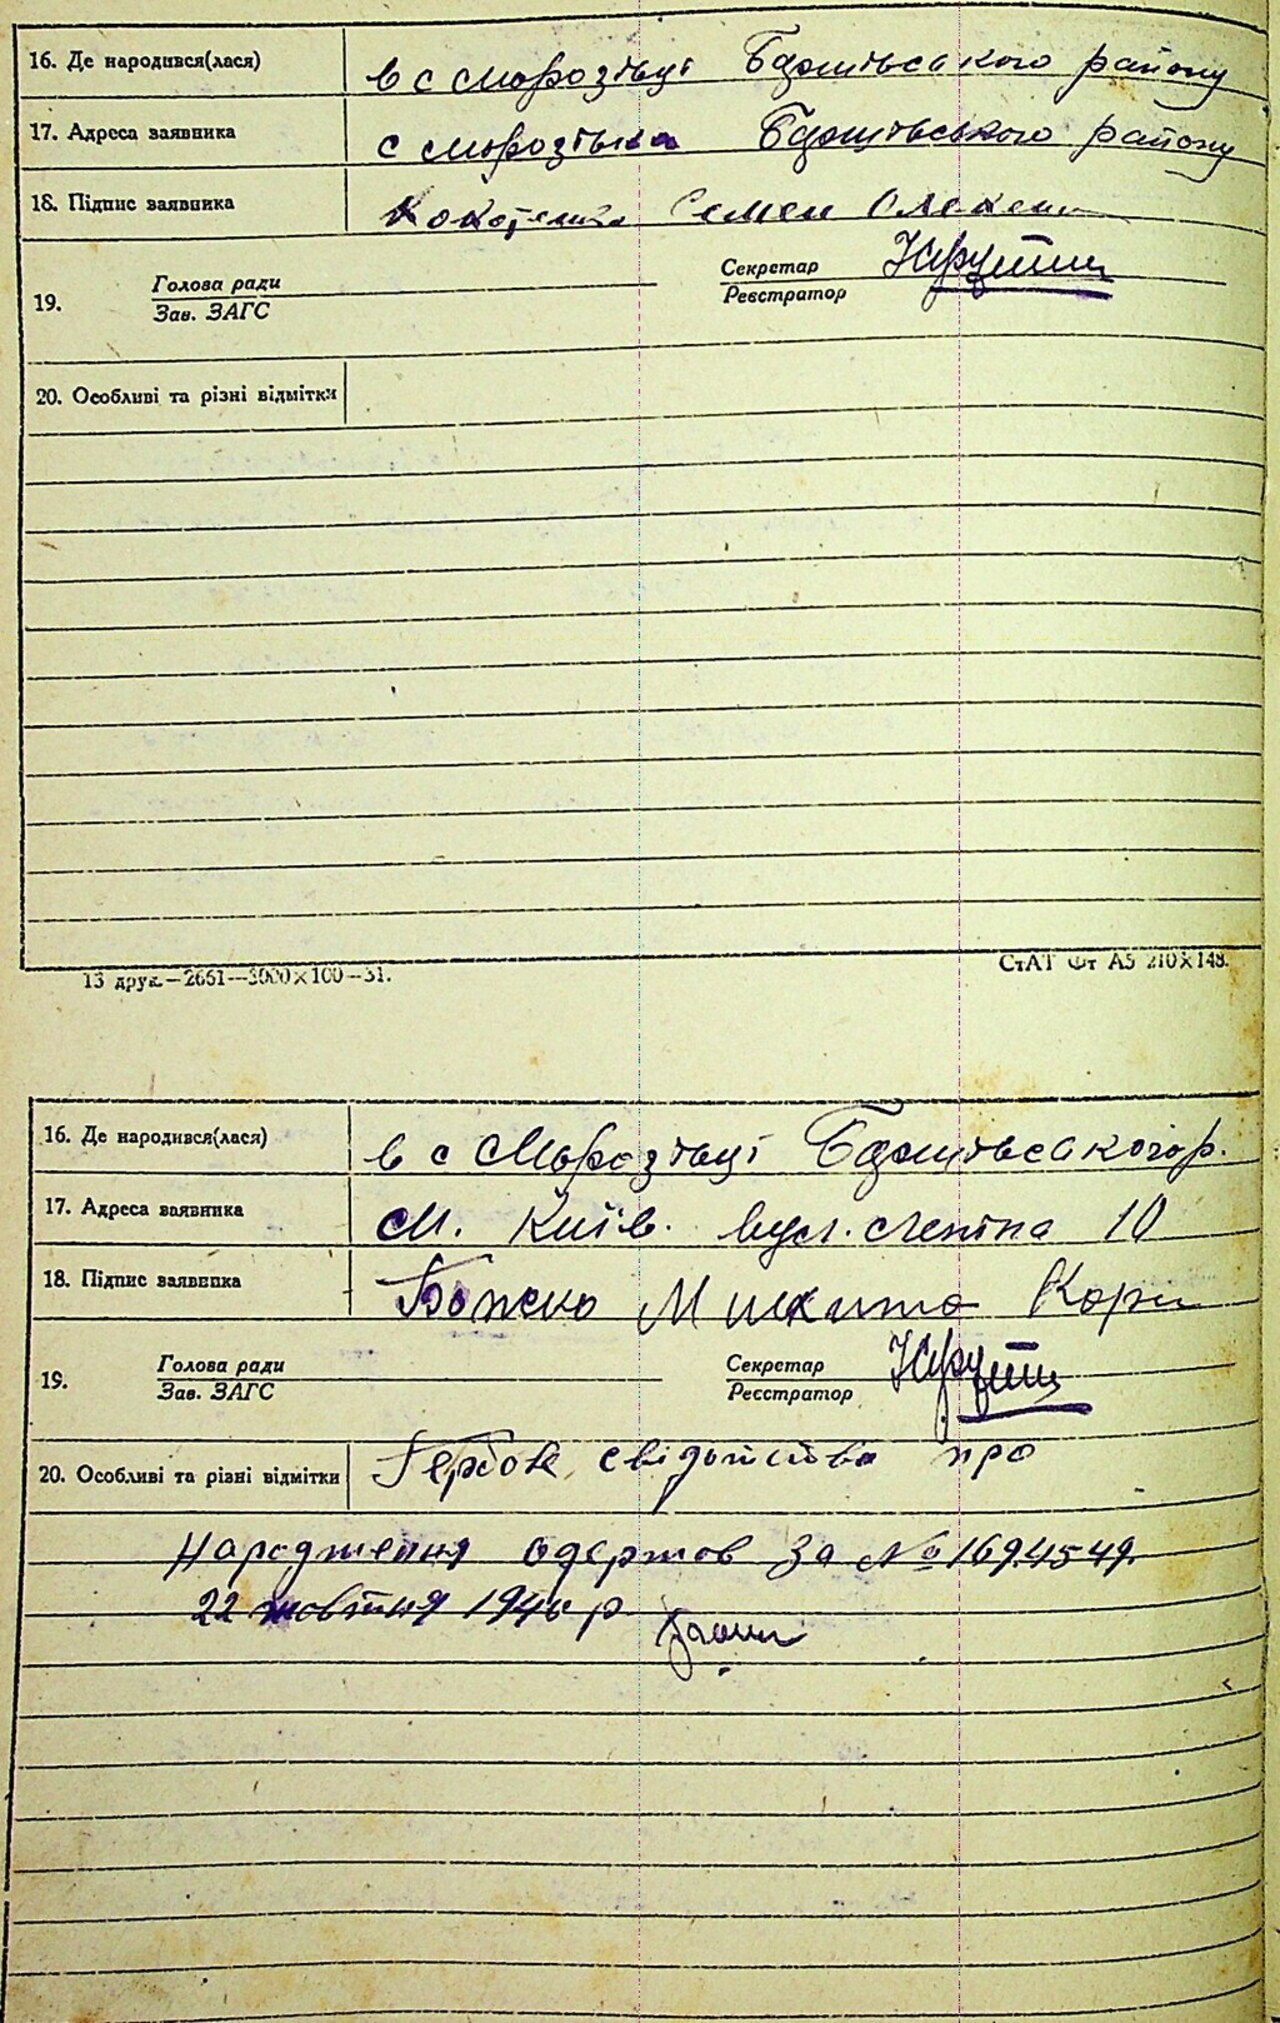 16. Де народився(лася) в с Морозівці Баришівського району
17. Адреса заявника с Морозівка Баришівського району
18. Підпис заявника Семен Олексіи
19. Голова ради Секретар
Зав. ЗАГС Реєстратор
20. Особливі та різні відмітки
13 друк.—2661—3000×100—31. СтАТ Фт А5 210×148.
16. Де народився(лася) в с Морозівці Баришівського р.
17. Адреса заявника м. Київ. вул. Леніна 10
18. Підпис заявника Божко Микита Корн
19. Голова ради Секретар
Зав. ЗАГС Реєстратор
20. Особливі та різні відмітки Гербове свідоитство про
Народження одержав за № 1694549.
22 жовтня 1946 р